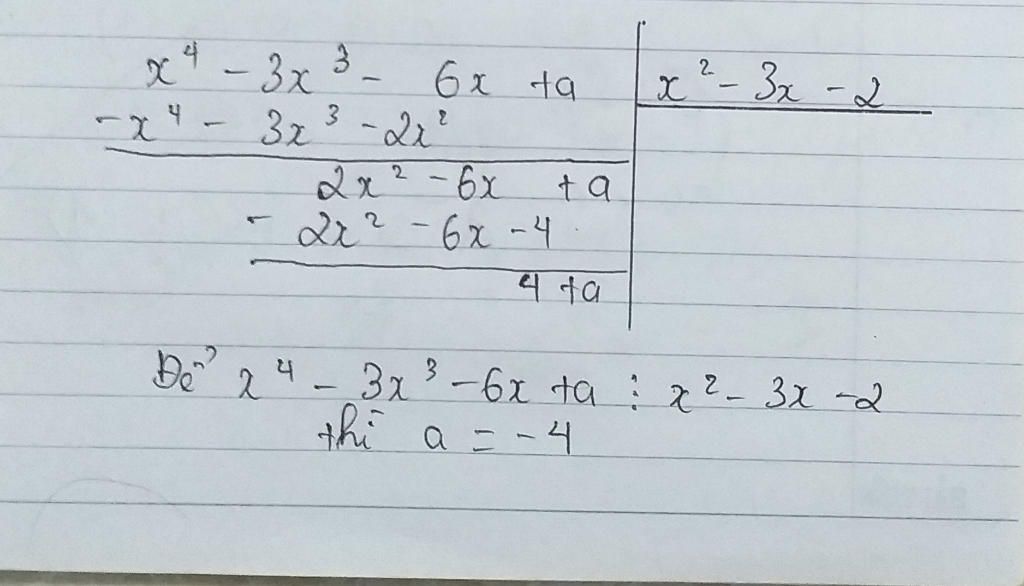 x⁴ - 3x³ - 6x + a | x² - 3x - 2
- x⁴ - 3x³ - 2x²
2x² - 6x + a
- 2x² - 6x - 4
4 + a
Để x⁴ - 3x³ - 6x + a ⋮ x² - 3x - 2
thì a = - 4